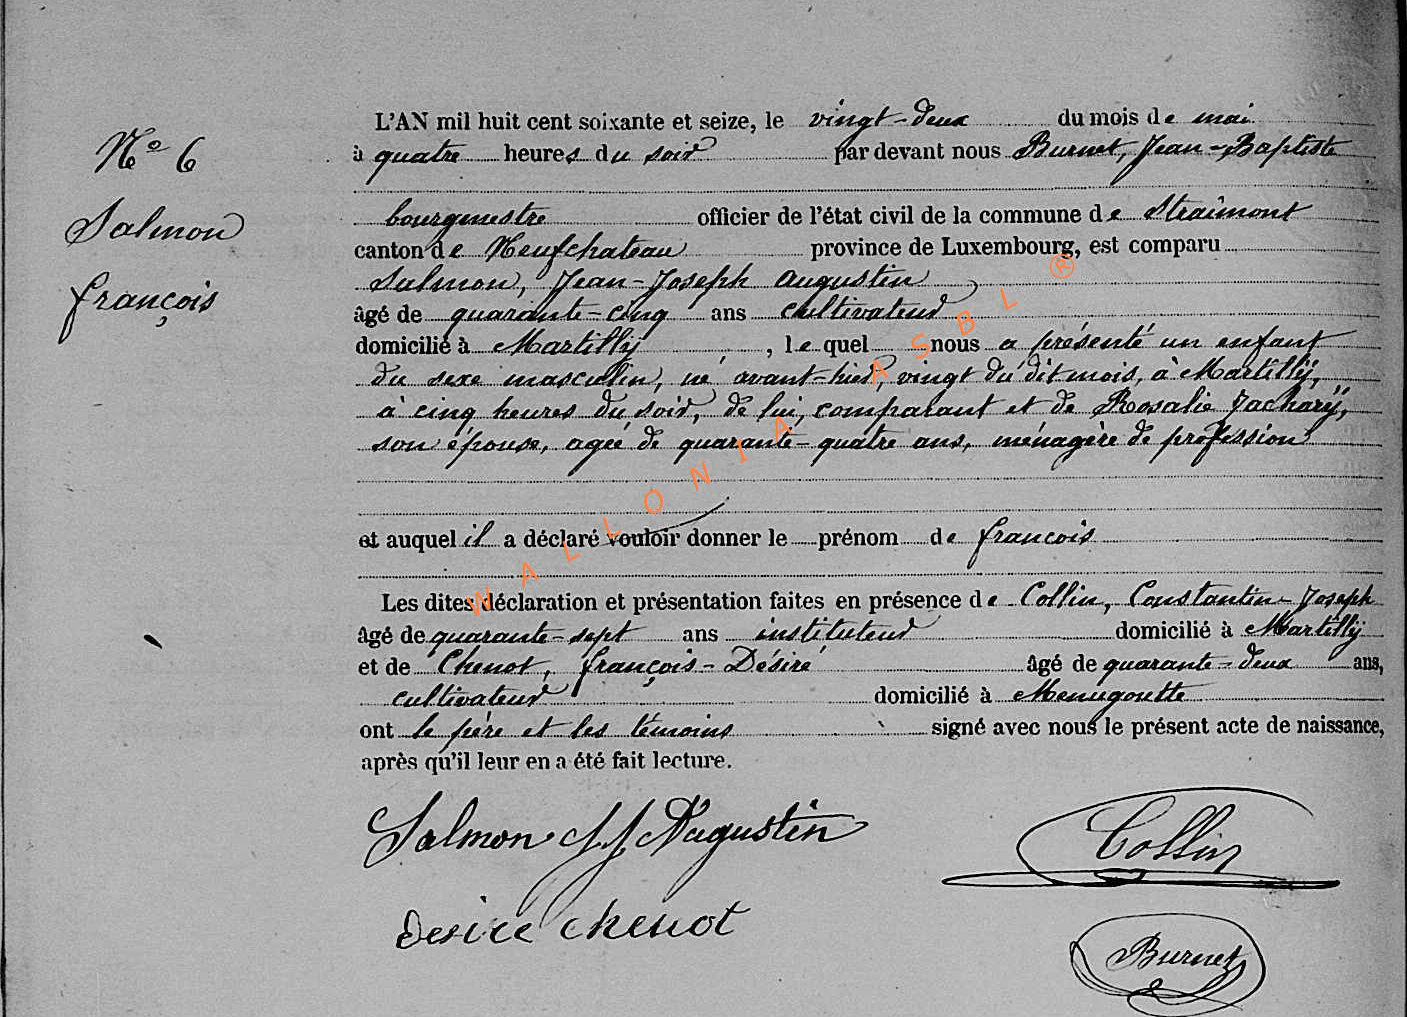 N° 6
Salmon
françois
L'AN mil huit cent soixante et seize, le vingt-deux du mois de mai
à quatre heures du soir par devant nous Burnet, Jean-Baptiste
bourgmestre officier de l'état civil de la commune de Straimont
canton de Neufchateau province de Luxembourg, est comparu
Salmon, Jean-Joseph Augustin
âgé de quarante-cinq ans cultivateur
domicilié à Martilly, lequel nous a présenté un enfant
du sexe masculin, né avant-hier, vingt du dit mois, à Martilly,
à cinq heures du soir, de lui, comparant et de Rosalie Zachary,
son épouse, agée de quarante-quatre ans, ménagère de profession
et auquel il a déclaré vouloir donner le prénom de françois
Les dites déclaration et présentation faites en présence de Collin, Constantin-Joseph
âgé de quarante-sept ans instituteur domicilié à Martilly
et de Chenot, françois-Désiré âgé de quarante-deux ans,
cultivateur domicilié à Menugoutte
ont le père et les témoins signé avec nous le présent acte de naissance,
après qu'il leur en a été fait lecture.
Salmon J J Augustin
Collin
desire chenot
Burnet
WALLONIA ASBL ®